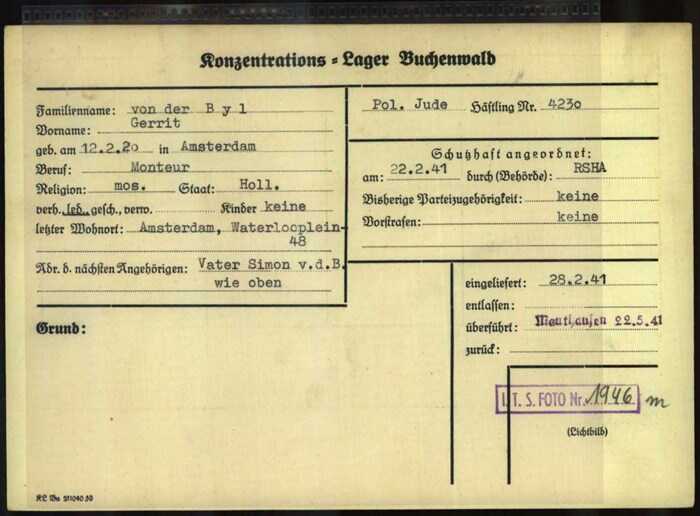 Konzentrations-Lager Buchenwald
Familienname: von der Byl
Vorname: Gerrit
geb. am 12.2.20 in Amsterdam
Beruf: Monteur
Religion: mos. Staat: Holl.
verh. led. gesch., verw. Kinder keine
letzter Wohnort: Amsterdam, Waterlooplein-
48
Adr. d. nächsten Angehörigen: Vater Simon v.d.B.
wie oben
Grund:
Pol. Jude Häftling Nr. 4230
Schutzhaft angeordnet:
am: 22.2.41 durch (Behörde): RSHA
Bisherige Parteizugehörigkeit: keine
Vorstrafen: keine
eingeliefert: 28.2.41
entlassen:
überführt: Mauthausen 22.5.41
zurück:
I. T. S. FOTO Nr. 1946 m
(Lichtbild)